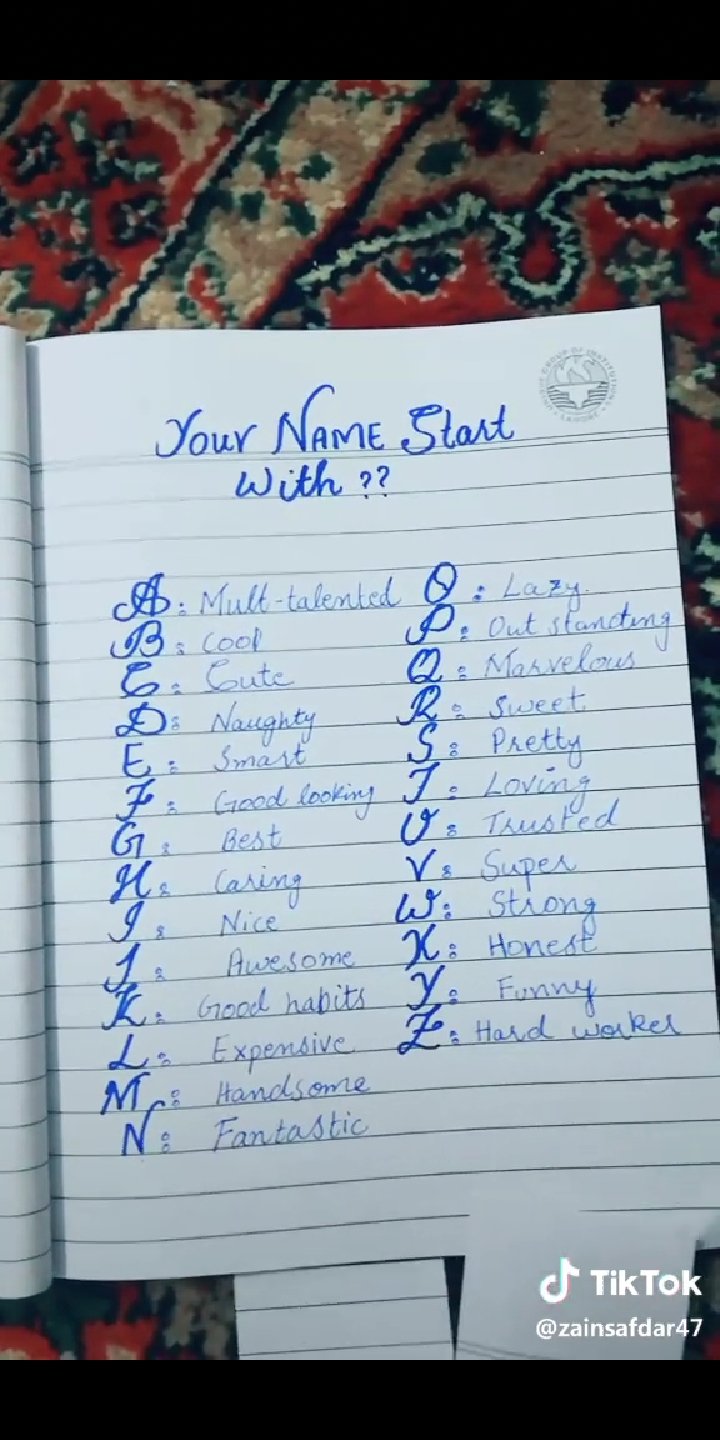 Your NAME Start
With ??
A : Mult-talented
B : Cool
C : Cute
D : Naughty
E : Smart
F : Good looking
G : Best
H : Caring
I : Nice
J : Awesome
K : Good habits
L : Expensive
M : Handsome
N : Fantastic
O : Lazy
P : Out standing
Q : Marvelous
R : Sweet
S : Pretty
T : Loving
U : Trusted
V : Super
W : Strong
X : Honest
Y : Funny
Z : Hard worker
TikTok
@zainsafdar47